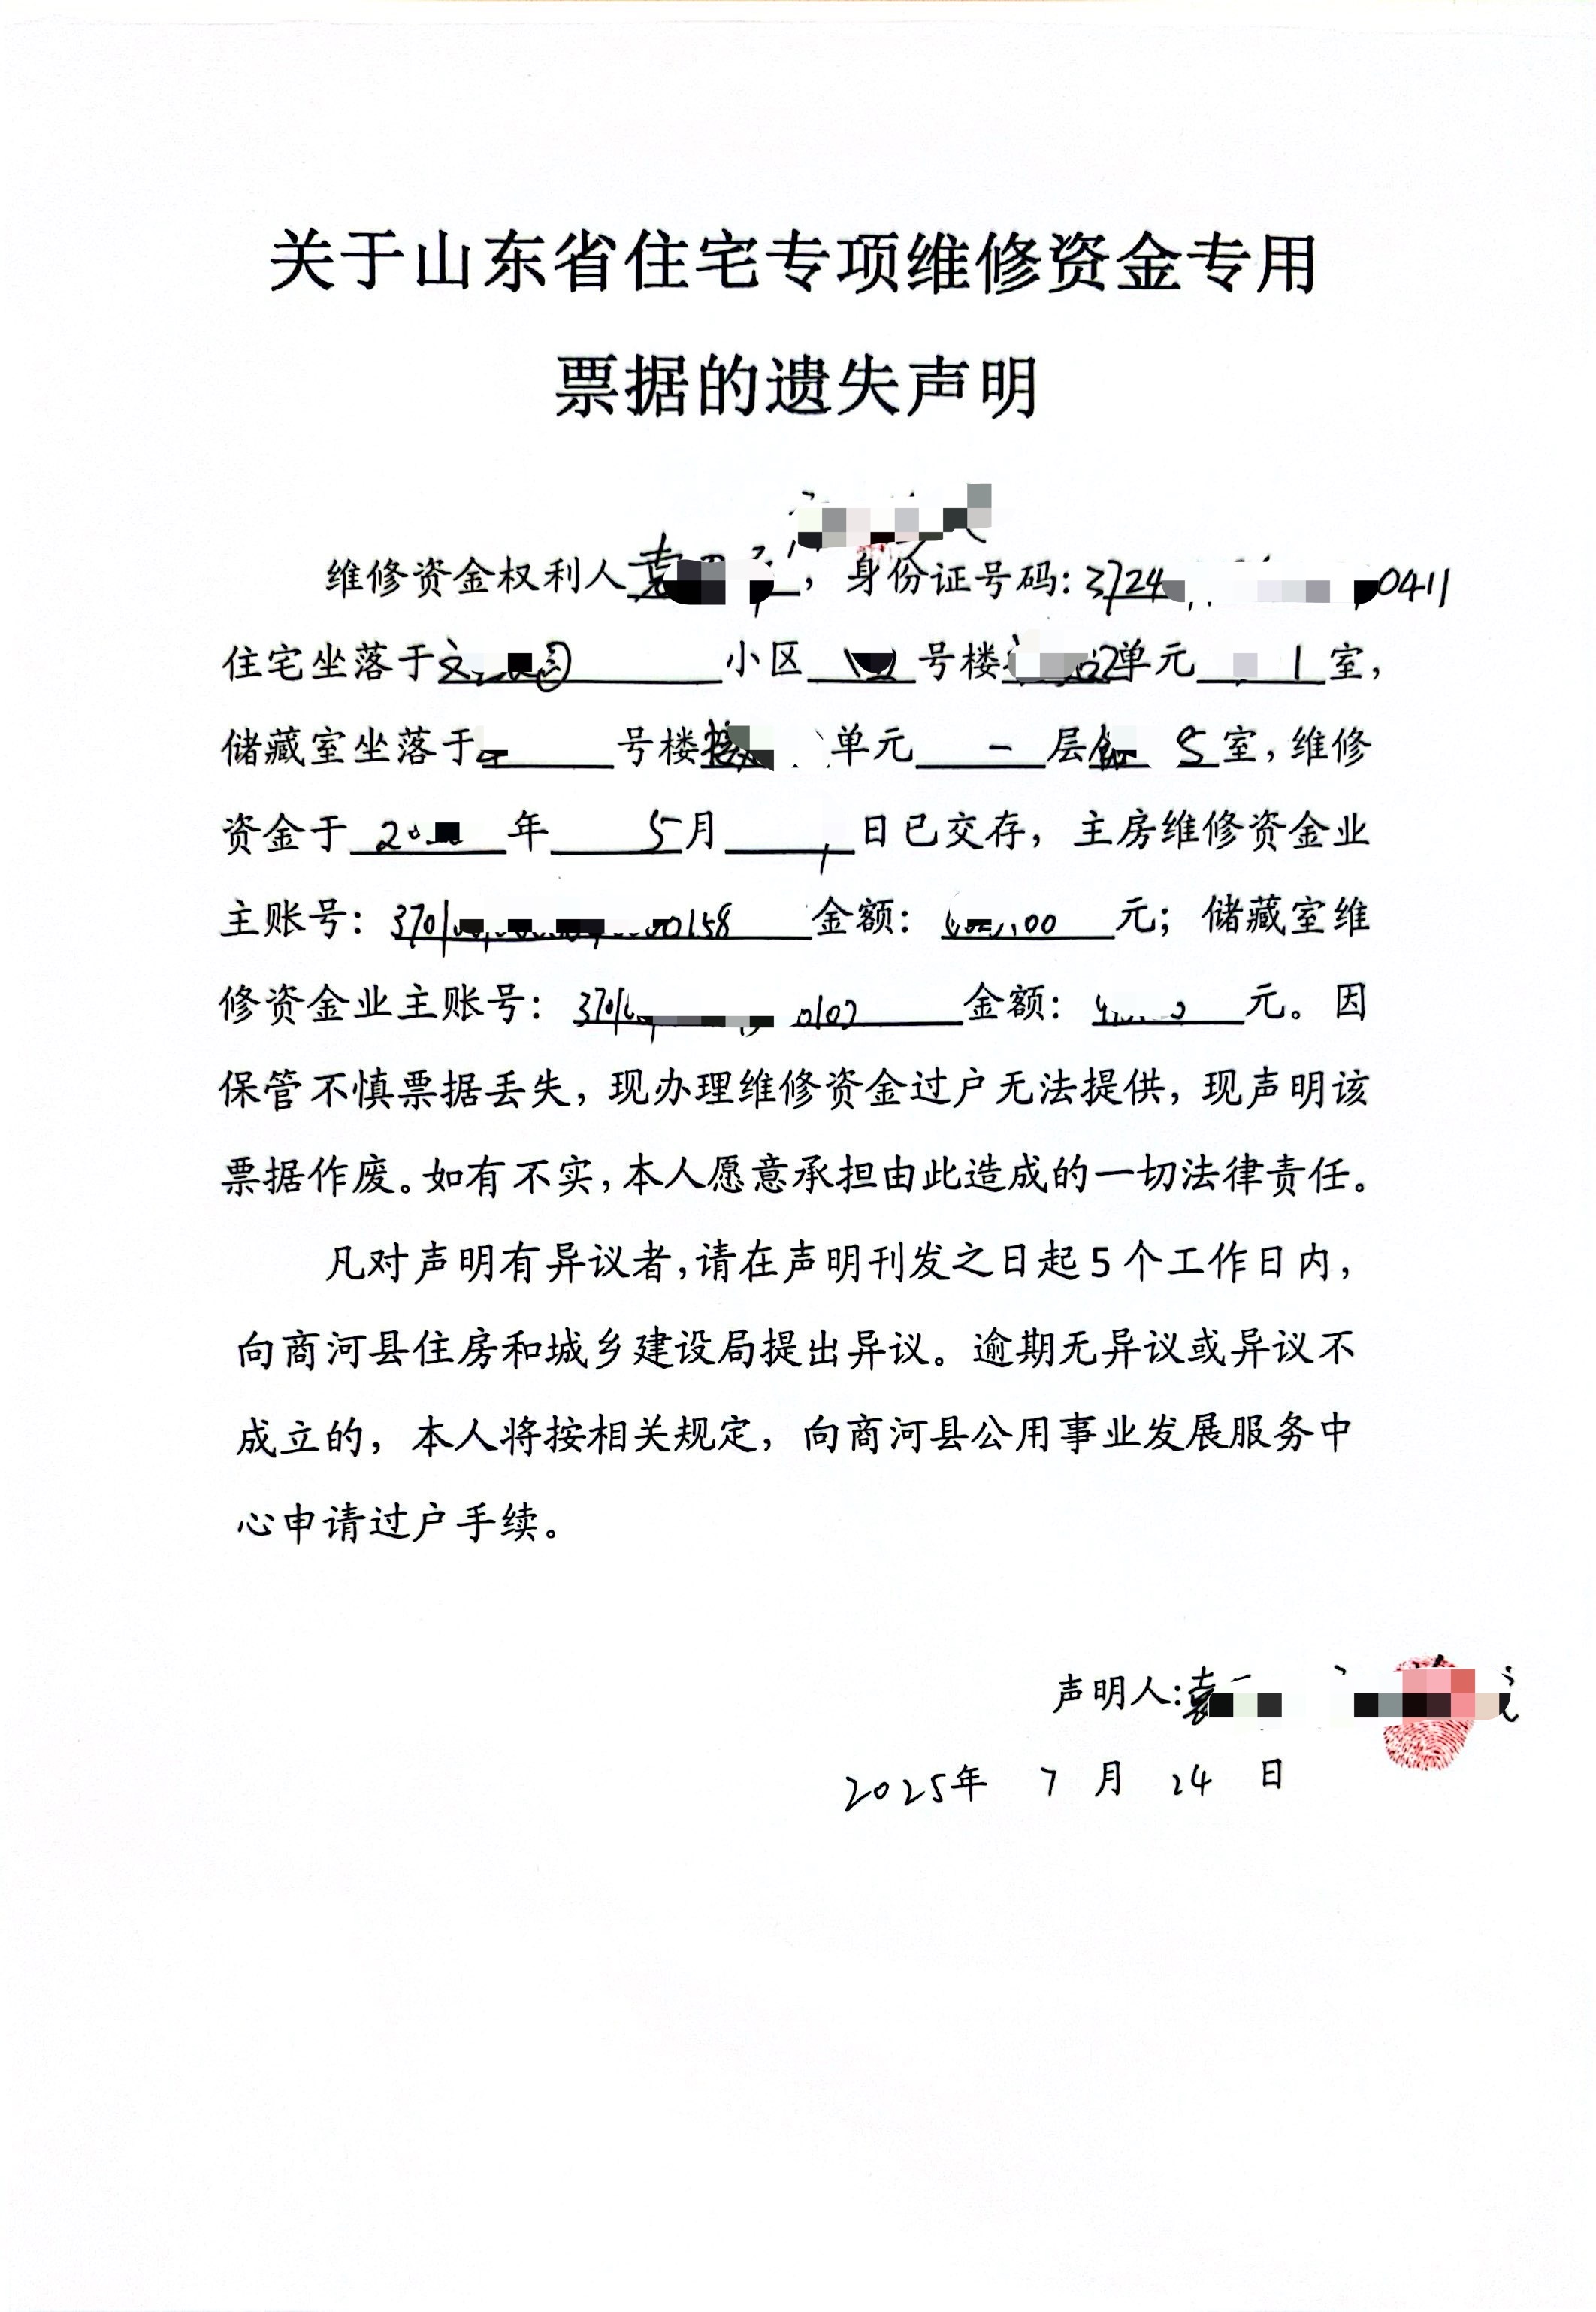 关于山东省住宅专项维修资金专用
票据的遗失声明
维修资金权利人袁，身份证号码：3724 0411
住宅坐落于文 小区 号楼 单元 1室，
储藏室坐落于 号楼 单元 一层 5室，维修
资金于20 年 5月 日已交存，主房维修资金业
主账号：3701 0158 金额： .00 元；储藏室维
修资金业主账号：3701 0107 金额： 元。因
保管不慎票据丢失，现办理维修资金过户无法提供，现声明该
票据作废。如有不实，本人愿意承担由此造成的一切法律责任。
凡对声明有异议者，请在声明刊发之日起5个工作日内，
向商河县住房和城乡建设局提出异议。逾期无异议或异议不
成立的，本人将按相关规定，向商河县公用事业发展服务中
心申请过户手续。
声明人：袁
2025年 7 月 24 日